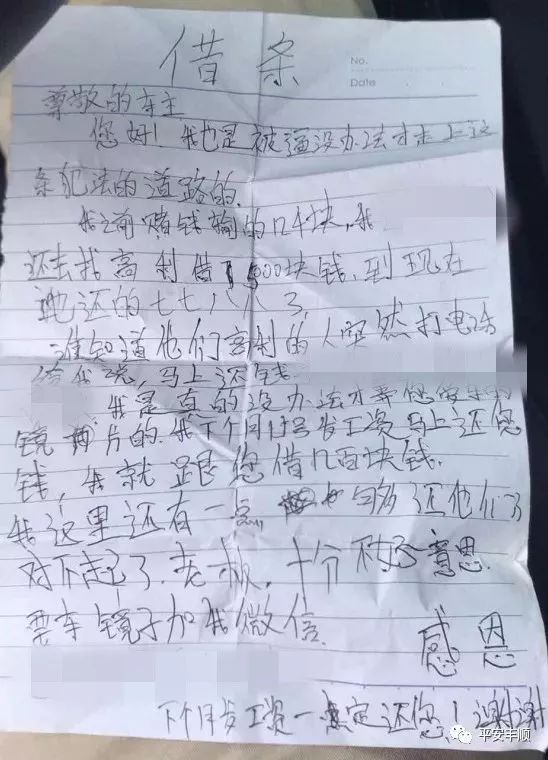 借条
No.
Date
尊敬的车主
您好！我也是被逼没办法才走上这
条犯法的道路的.
我之前赌钱输的几千块,我
还去找高利借了1500块钱,到现在
也还的七七八八了,
谁知道他们高利的人突然打电话
给我说,马上还钱
我是真的没办法才弄您的车
镜片的.我下个月15号发工资马上还您
钱,我就跟您借几百块钱.
我这里还有一点 够还他们了
对不起了.老板.十分不好意思.
要车镜子加我微信.
感恩
下个月发工资一定还您！谢谢
平安丰顺